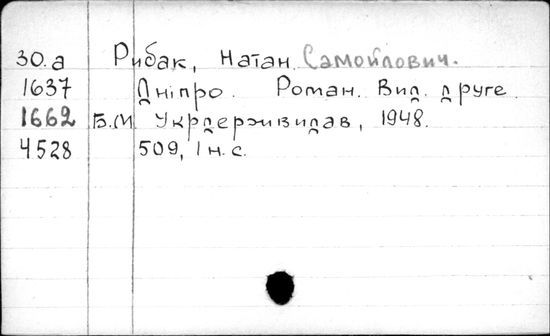 30.а Рибак, Натан Самойлович.
1637 Дніпро. Роман. Вид. друге
1662 Б.М. Укрдержвидав, 1948.
4528 509, 1 н.с.